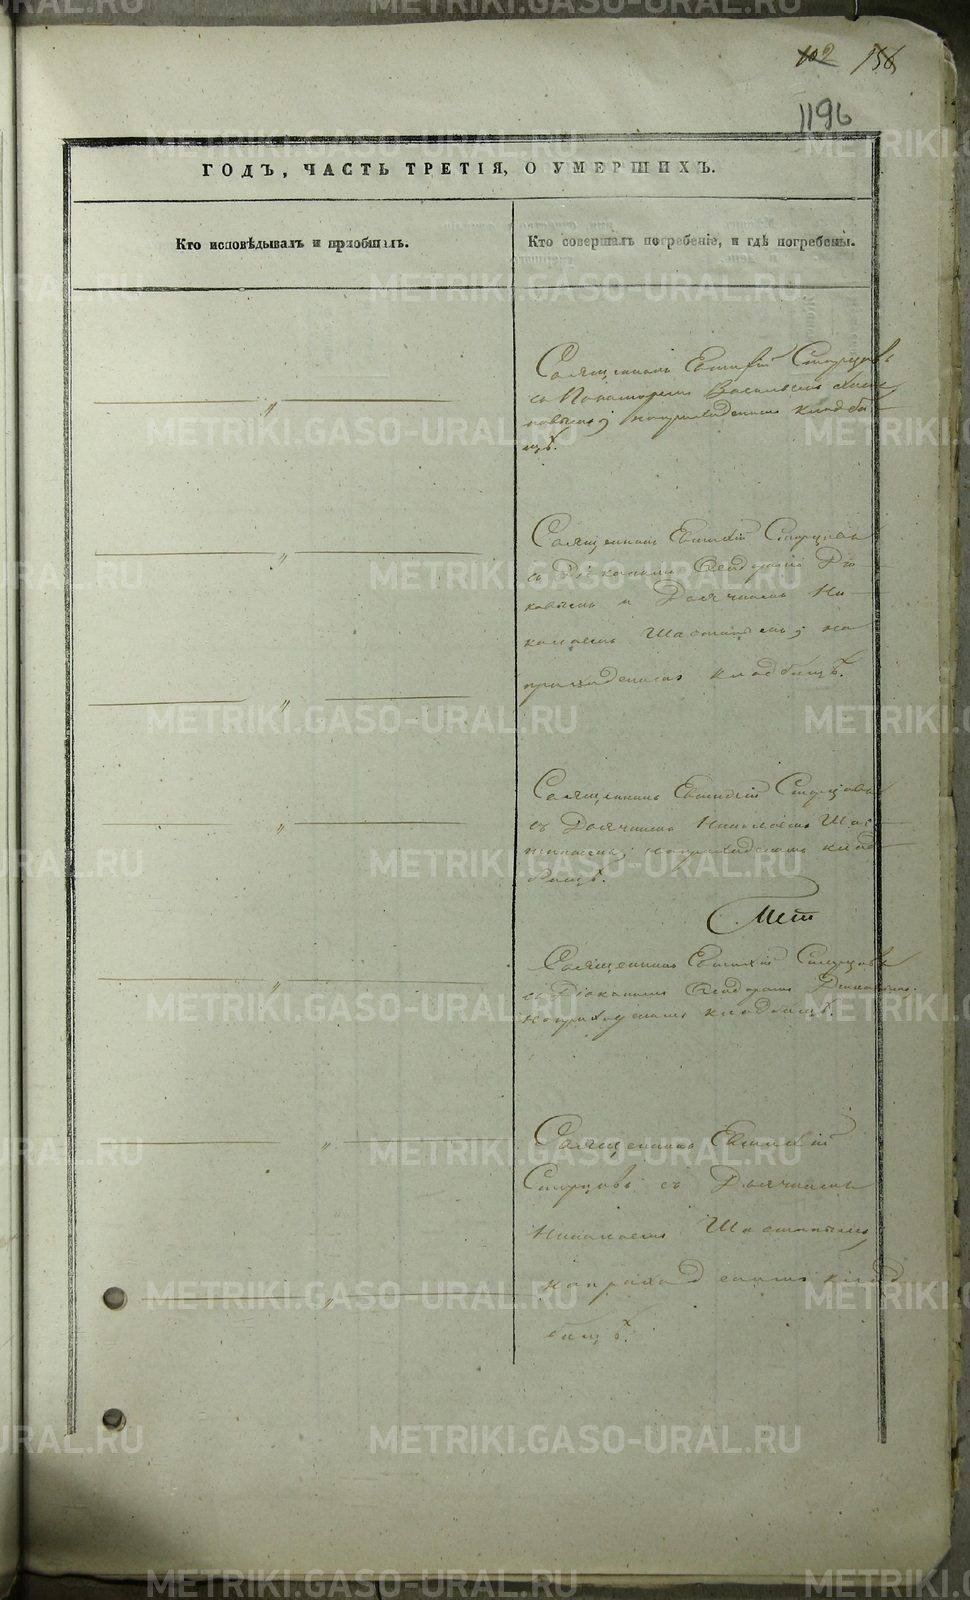 102 156
1196
ГОДЪ, ЧАСТЬ ТРЕТІЯ, О УМЕРШИХЪ.
Кто исповѣдывалъ и приобщалъ.
Кто совершалъ погребеніе, и гдѣ погребены.
Священникъ Евѳимій Старцовъ
съ Пономаремъ Васильемъ
новымъ; на приходскомъ кладби
щѣ.
Священникъ Евѳимій Старцовъ
съ Діакономъ Ѳеодоромъ
и Дьячкомъ Ни
колаемъ на
приходскомъ кладбищѣ.
Священникъ Евѳимій Старцовъ
съ Дьячкомъ Николаемъ
на приходскомъ клад
бищѣ.
Священникъ Евѳимій Старцовъ
съ Діакономъ Ѳеодоромъ
на приходскомъ кладбищѣ.
Священникъ Евѳимій
Старцовъ съ Дьячкомъ
Николаемъ
на приходскомъ клад
бищѣ.
METRIKI.GASO-URAL.RU